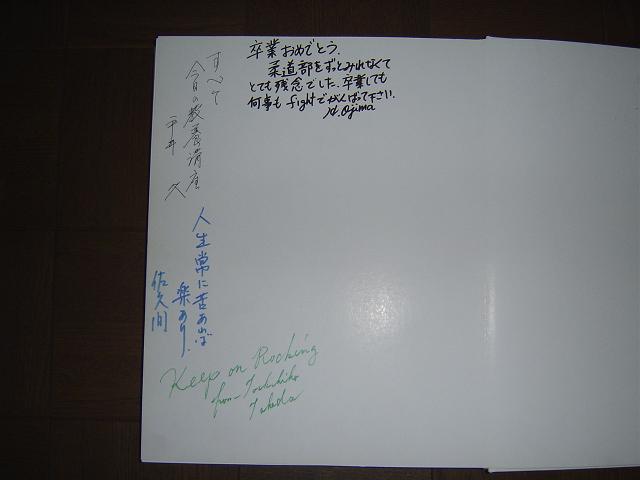 卒業おめでとう.
柔道部をずっとみれなくて
とても残念でした. 卒業しても
何事も fightでがんばって下さい.
H. Ojima
すべて
今日の教養講座
平井 久
人生常に苦あれば
楽あり.
佐久間
Keep on Rocking
from Toshihiko
Takeda